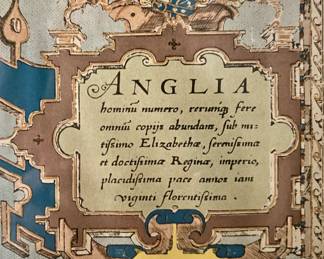 ANGLIA
hominũ numero, rerumq́ fere
omniũ copijs abundans, sub mi-
tissimo Elizabethæ, serenissimæ
et doctissimæ Reginæ, imperio,
placidissima pace annos iam
viginti florentissima.